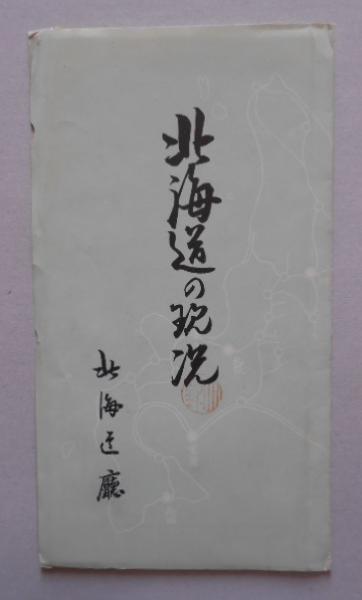 北海道の現況
北海道廳